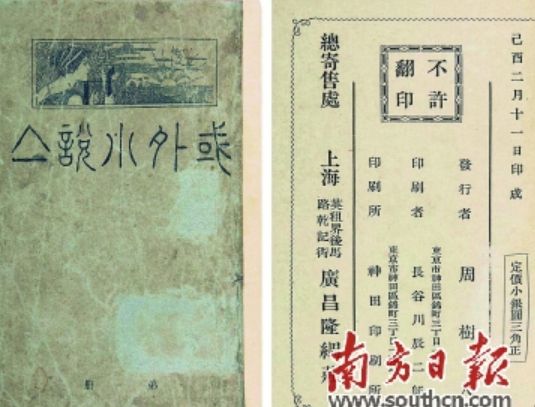 或外小說亼
弟 册
己酉二月十一日印成
定價小銀圓三角正
不許翻印
發行者 周樹
印刷者 東京市神田區錦町三丁目 長谷川辰二郎
印刷所 東京市神田區錦町三丁 神田印刷所
總寄售處 上海 英租界後馬路乾記衖 廣昌隆綢莊
南方日報
www.southcn.com